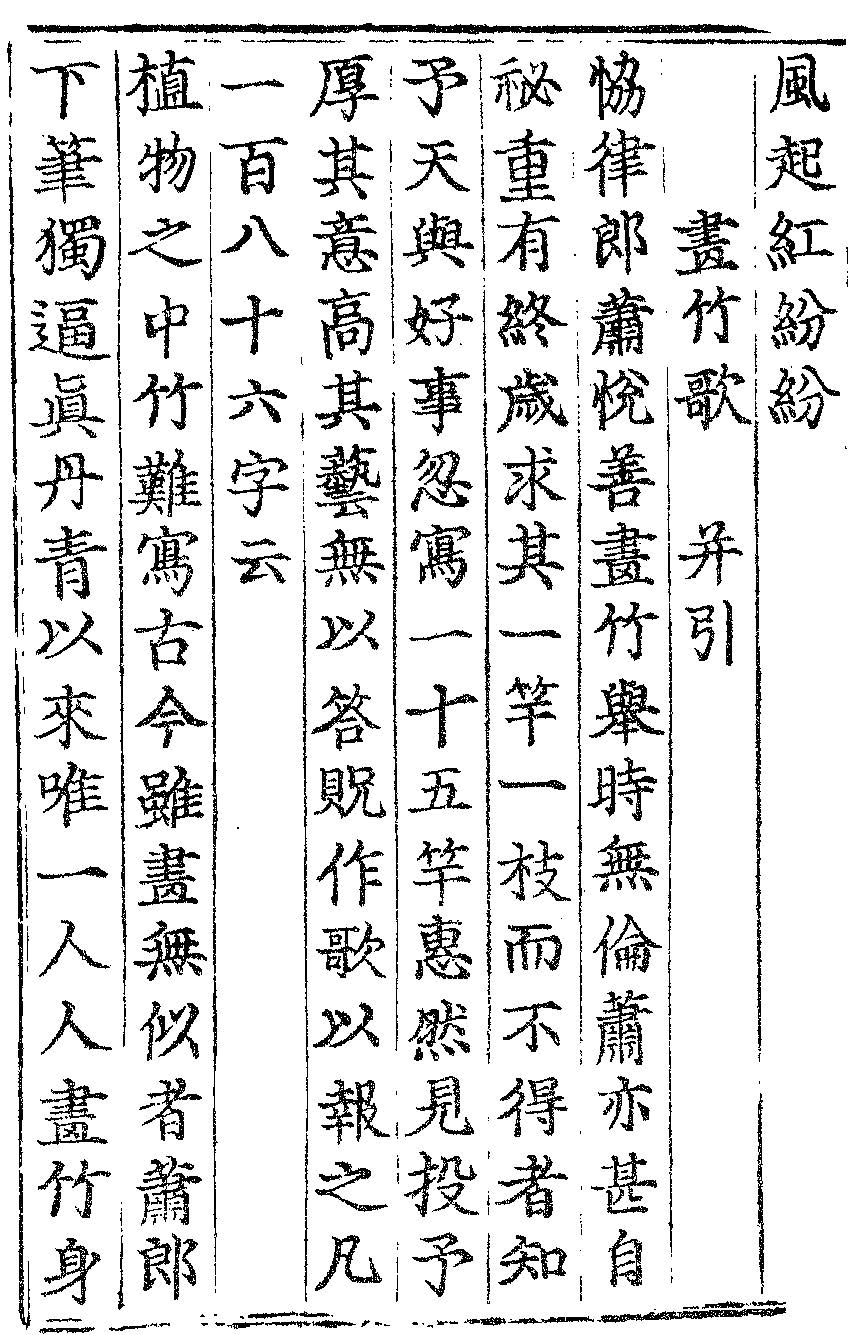 風起紅紛紛
畫竹歌　并引
恊律郎蕭悅善畫竹舉時無倫蕭亦甚自
祕重有終歲求其一竿一枝而不得者知
予天與好事忽寫一十五竿惠然見投予
厚其意高其藝無以答貺作歌以報之凡
一百八十六字云
植物之中竹難寫古今雖畫無似者蕭郎
下筆獨逼眞丹青以來唯一人人畫竹身